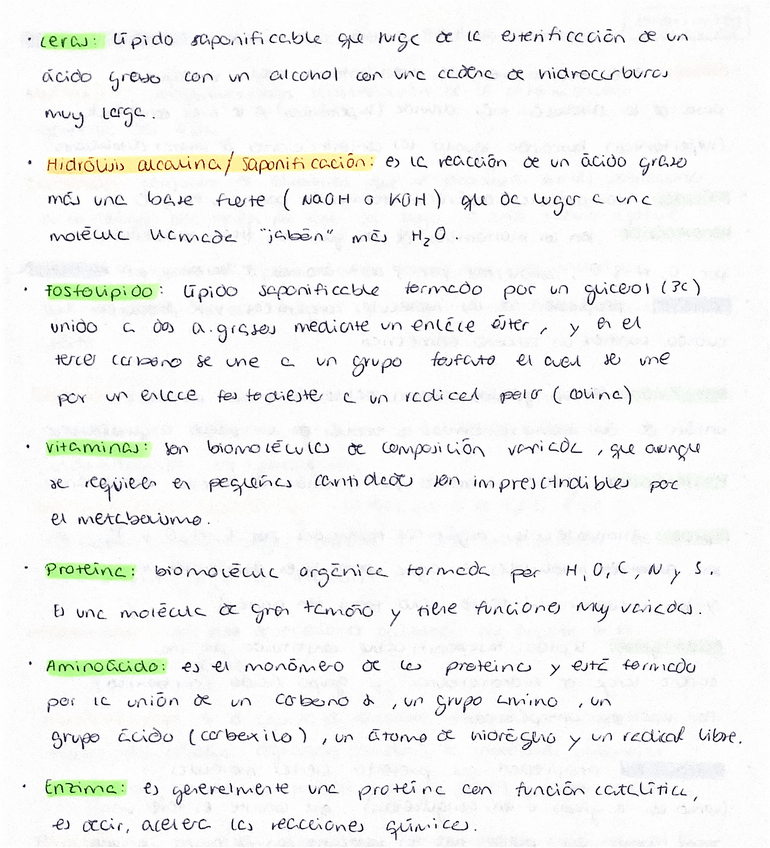 · Ceras: lípido saponificable que surge de la esterificación de un
ácido graso con un alcohol con una cadena de hidrocarburos
muy larga.
· Hidrólisis alcalina / Saponificación: es la reacción de un ácido graso
más una base fuerte (NaOH o KOH) que da lugar a una
molécula llamada "jabón" más H₂O.
· Fosfolípido: lípido saponificable formado por un glicerol (3C)
unido a dos a.grasos mediante un enlace éster, y en el
tercer carbono se une a un grupo fosfato el cual se une
por un enlace fosfodiester a un radical polar (colina)
· Vitaminas: son biomoléculas de composición variada, que aunque
se requieren en pequeñas cantidades son imprescindibles por
el metabolismo.
· Proteína: biomolécula orgánica formada por H, O, C, N y S.
Es una molécula de gran tamaño y tiene funciones muy variadas.
· Aminoácido: es el monómero de las proteínas y está formado
por la unión de un carbono α, un grupo amino, un
grupo ácido (carboxilo), un átomo de hidrógeno y un radical libre.
· Enzima: es generalmente una proteína con función catalítica,
es decir, acelera las reacciones químicas.